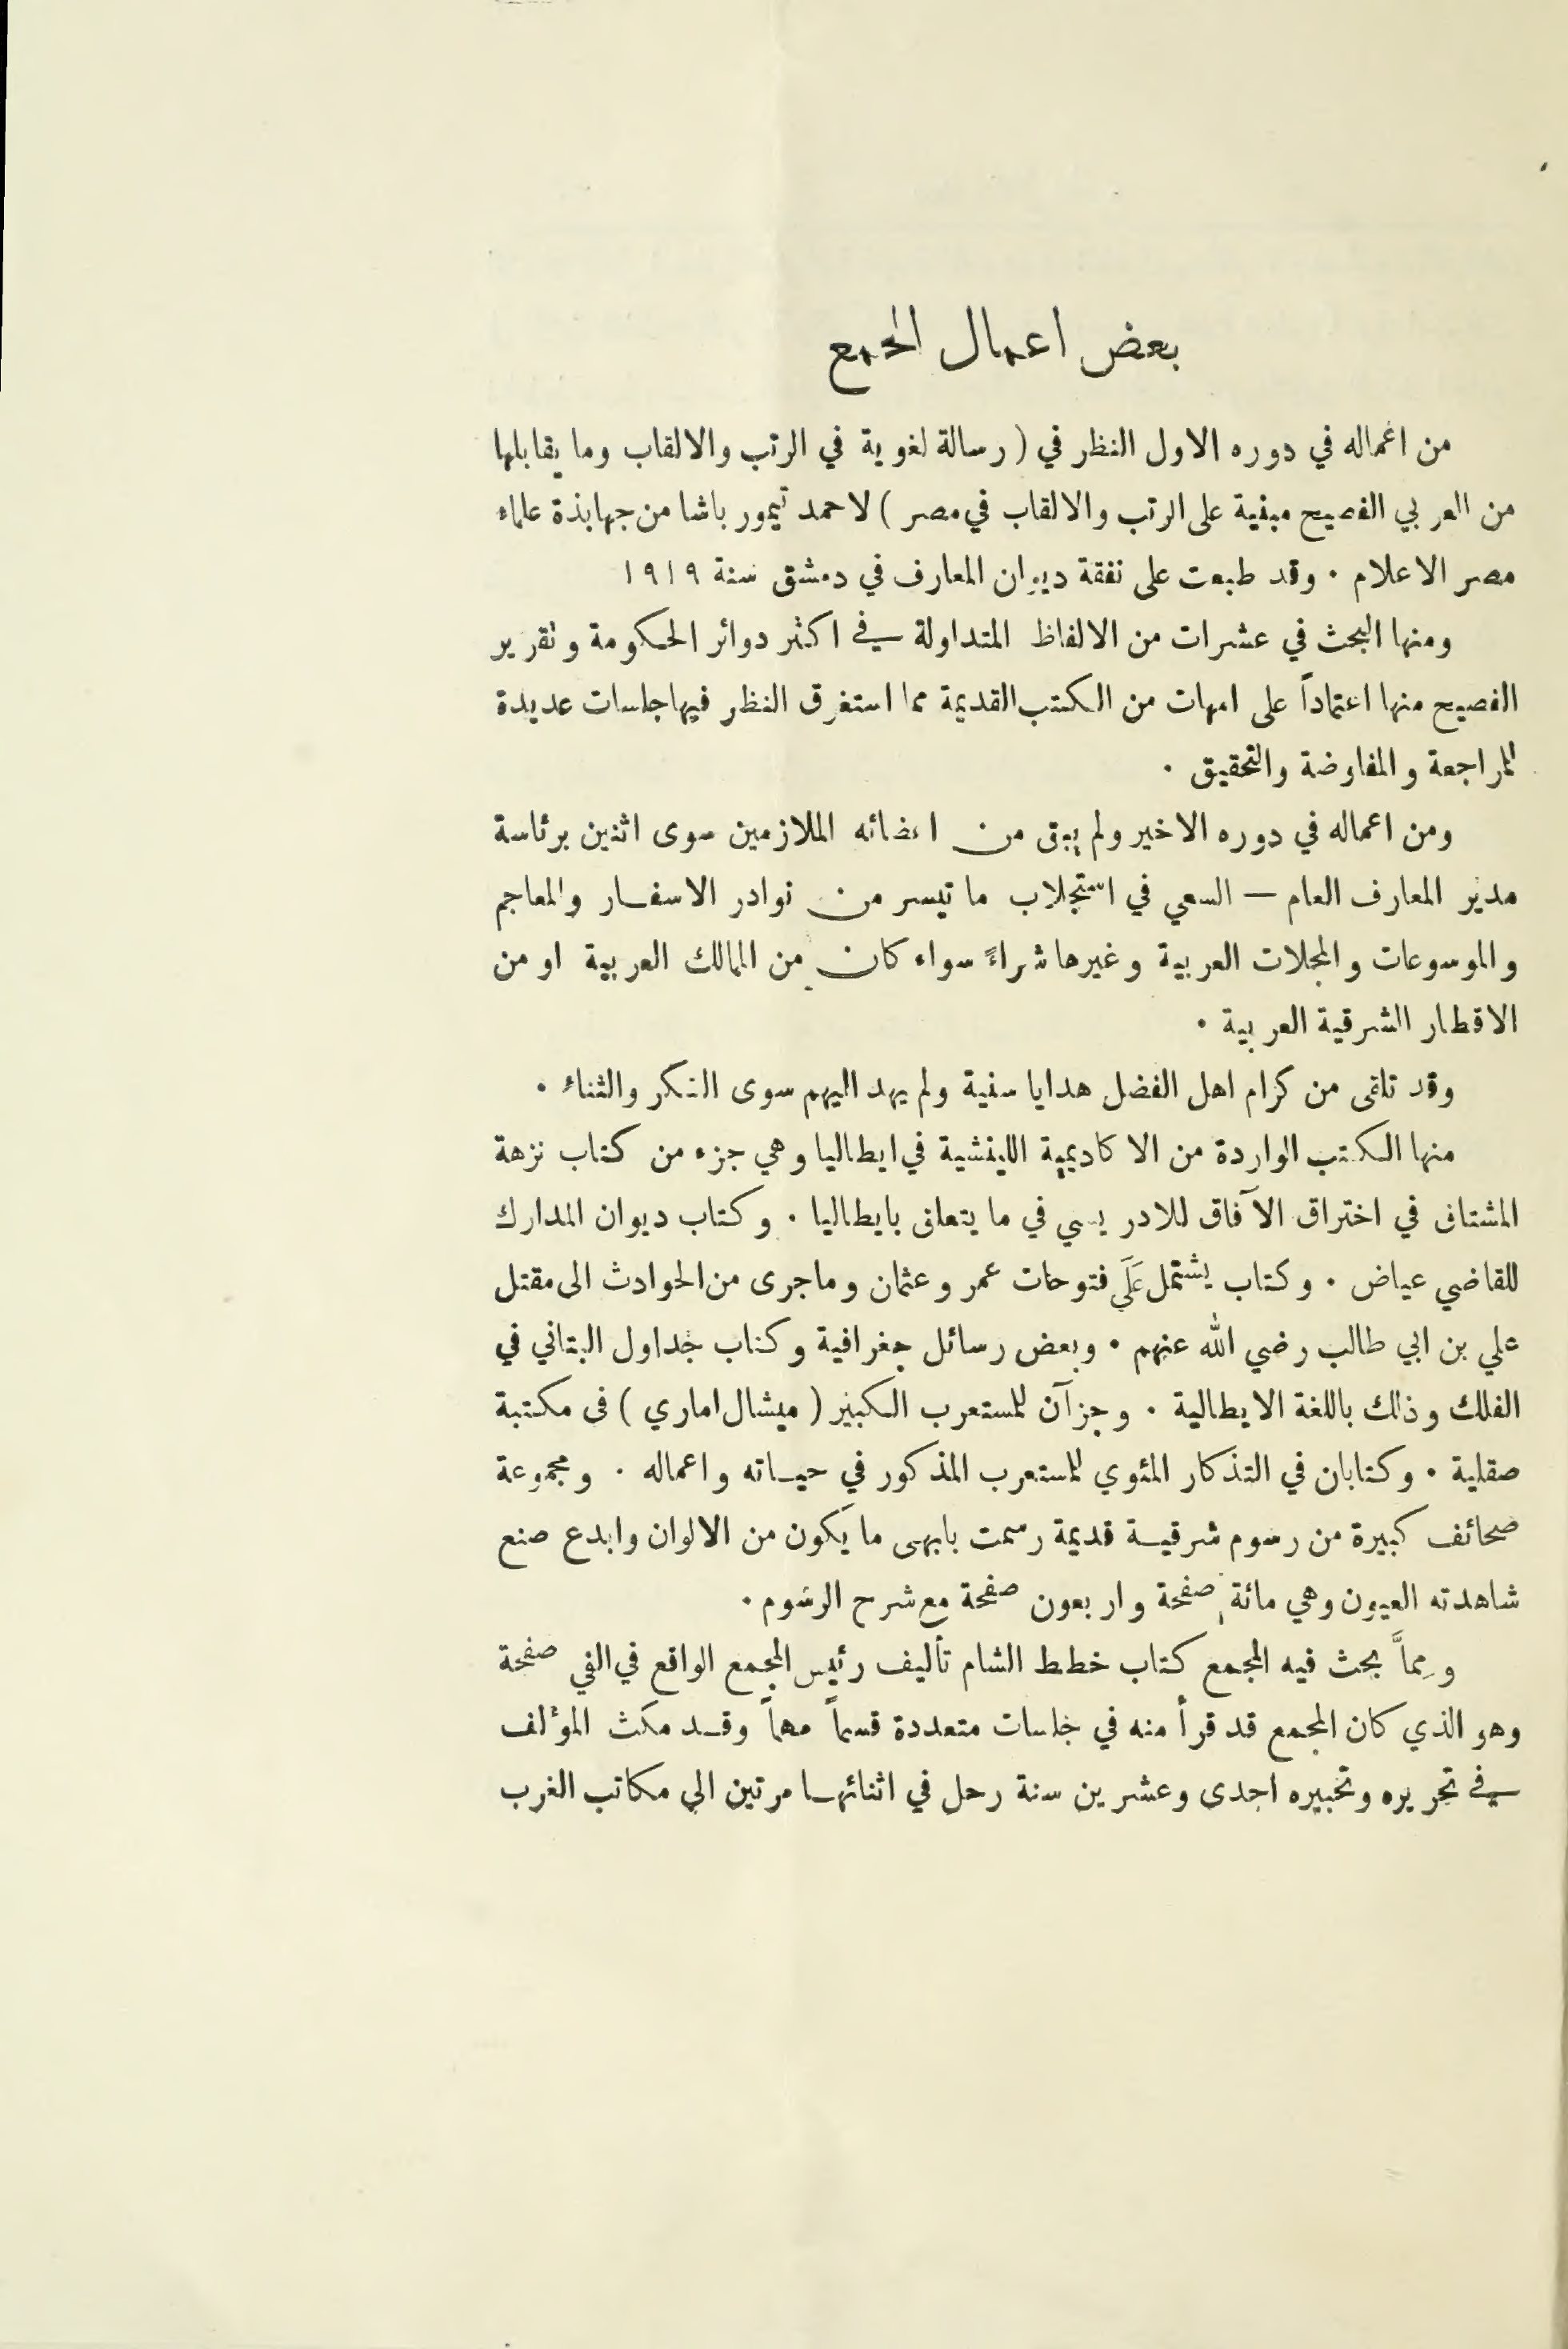 بعض اعمال المجمع
من اعماله في دوره الاول النظر في ( رسالة لغوية في الرتب والالقاب وما يقابلها
من العربي الفصيح مبنية على الرتب والالقاب في مصر ) لاحمد تيمور باشا من جهابذة علماء
مصر الاعلام ٠ وقد طبعت على نفقة ديوان المعارف في دمشق سنة ١٩١٩
ومنها البحث في عشرات من الالفاظ المتداولة في اكثر دوائر الحكومة وتقرير
الفصيح منها اعتماداً على امهات من الكتب القديمة مما استغرق النظر فيها جلسات عديدة
للمراجعة والمفاوضة والتحقيق ٠
ومن اعماله في دوره الاخير ولم يبق من اعضائه الملازمين سوى اثنين برئاسة
مدير المعارف العام — السعي في استجلاب ما تيسر من نوادر الاسفار والمعاجم
والموسوعات والمجلات العربية وغيرها شراءً سواء كان من الممالك العربية او من
الاقطار الشرقية العربية ٠
وقد تلقى من كرام اهل الفضل هدايا سنية ولم يهد اليهم سوى الشكر والثناء ٠
منها الكتب الواردة من الاكاديمية اللينشية في ايطاليا وهي جزء من كتاب نزهة
المشتاق في اختراق الآفاق للادريسي في ما يتعلق بايطاليا ٠ وكتاب ديوان المدارك
للقاضي عياض ٠ وكتاب يشتمل عَلَى فتوحات عمر وعثمان وما جرى من الحوادث الى مقتل
علي بن ابي طالب رضي الله عنهم ٠ وبعض رسائل جغرافية وكتاب جداول البتاني في
الفلك وذلك باللغة الايطالية ٠ وجزآن للمستعرب الكبير ( ميشال اماري ) في مكتبة
صقلية ٠ وكتابان في التذكار المئوي للمستعرب المذكور في حياته واعماله ٠ ومجموعة
صحائف كبيرة من رسوم شرقية قديمة رسمت بابهى ما يكون من الالوان وابدع صنع
شاهدته العيون وهي مائة صفحة واربعون صفحة مع شرح الرسوم ٠
ومِمَّا بحث فيه المجمع كتاب خطط الشام تأليف رئيس المجمع الواقع في الفي صفحة
وهو الذي كان المجمع قد قرأ منه في جلسات متعددة قسماً مهماً وقد مكث المؤلف
في تحريره وتحبيره احدى وعشرين سنة رحل في اثنائها مرتين الى مكاتب الغرب